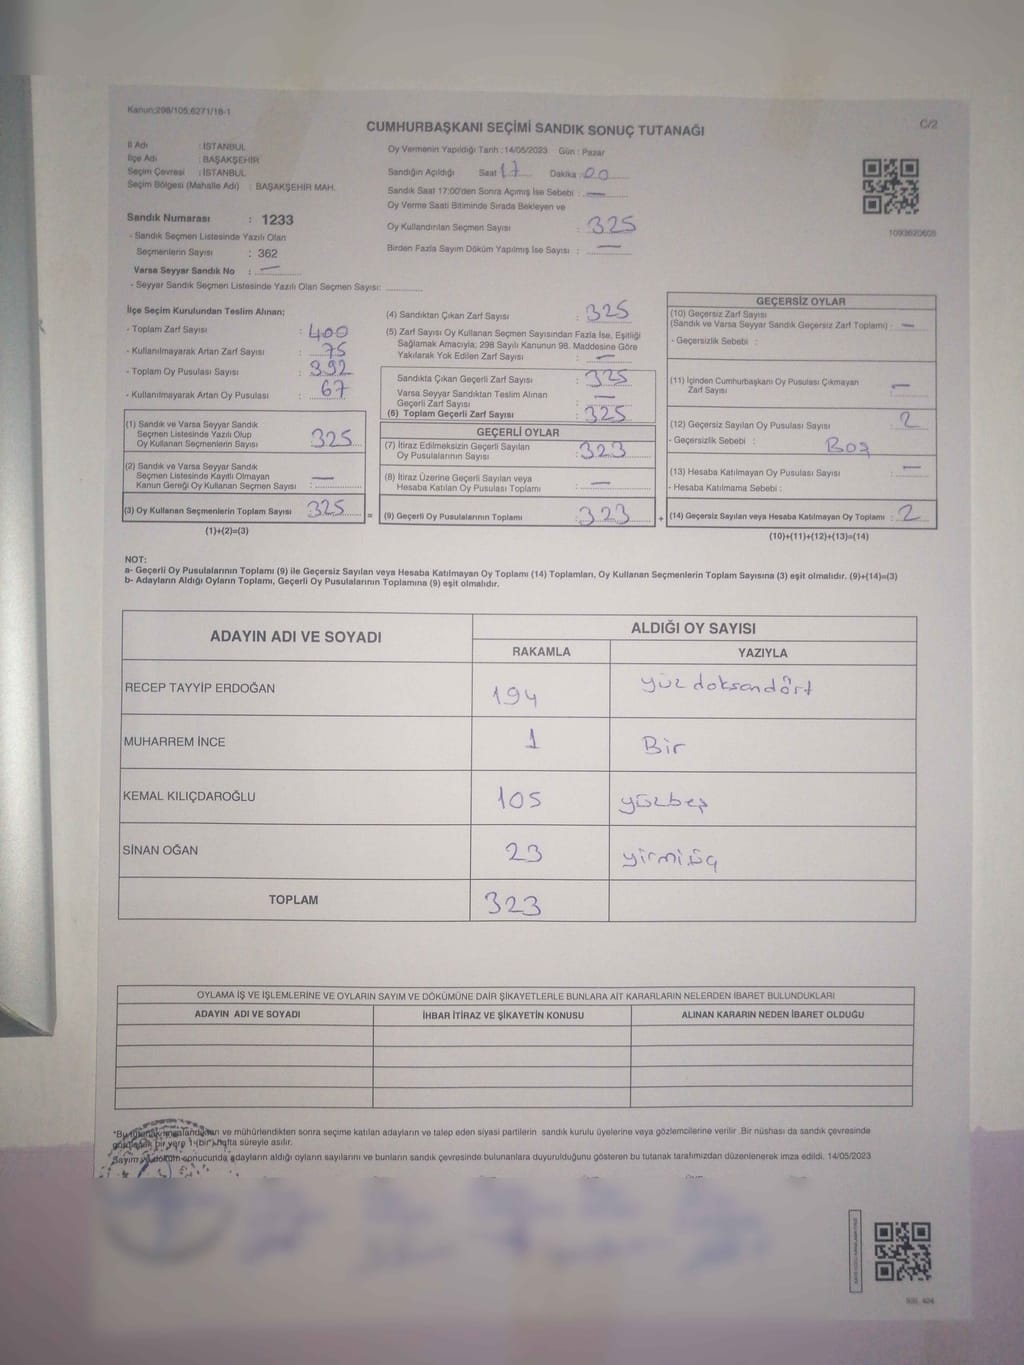 Kanun:298/105;6271/16-1
C/2
CUMHURBAŞKANI SEÇİMİ SANDIK SONUÇ TUTANAĞI
İl Adı : İSTANBUL
İlçe Adı : BAŞAKŞEHİR
Seçim Çevresi : İSTANBUL
Seçim Bölgesi (Mahalle Adı) : BAŞAKŞEHİR MAH.
Sandık Numarası : 1233
- Sandık Seçmen Listesinde Yazılı Olan
Seçmenlerin Sayısı : 362
Varsa Seyyar Sandık No : —
- Seyyar Sandık Seçmen Listesinde Yazılı Olan Seçmen Sayısı:
Oy Vermenin Yapıldığı Tarih : 14/05/2023 Gün : Pazar
Sandığın Açıldığı Saat 17 Dakika 00
Sandık Saat 17:00'den Sonra Açımış İse Sebebi : —
Oy Verme Saati Bitiminde Sırada Bekleyen ve
Oy Kullandırılan Seçmen Sayısı : 325
Birden Fazla Sayım Döküm Yapılmış İse Sayısı : —
1093620605
İlçe Seçim Kurulundan Teslim Alınan;
- Toplam Zarf Sayısı : 400
- Kullanılmayarak Artan Zarf Sayısı : 75
- Toplam Oy Pusulası Sayısı : 392
- Kullanılmayarak Artan Oy Pusulası : 67
(1) Sandık ve Varsa Seyyar Sandık
Seçmen Listesinde Yazılı Olup
Oy Kullanan Seçmenlerin Sayısı 325
(2) Sandık ve Varsa Seyyar Sandık
Seçmen Listesinde Kayıtlı Olmayan
Kanun Gereği Oy Kullanan Seçmen Sayısı : —
(3) Oy Kullanan Seçmenlerin Toplam Sayısı 325
(1)+(2)=(3)
=
(4) Sandıktan Çıkan Zarf Sayısı : 325
(5) Zarf Sayısı Oy Kullanan Seçmen Sayısından Fazla İse, Eşitliği
Sağlamak Amacıyla; 298 Sayılı Kanunun 98. Maddesine Göre
Yakılarak Yok Edilen Zarf Sayısı : —
Sandıkta Çıkan Geçerli Zarf Sayısı : 325
Varsa Seyyar Sandıktan Teslim Alınan
Geçerli Zarf Sayısı : —
(6) Toplam Geçerli Zarf Sayısı : 325
GEÇERLİ OYLAR
(7) İtiraz Edilmeksizin Geçerli Sayılan
Oy Pusulalarının Sayısı : 323
(8) İtiraz Üzerine Geçerli Sayılan veya
Hesaba Katılan Oy Pusulası Toplamı : —
(9) Geçerli Oy Pusulalarının Toplamı : 323
+
GEÇERSİZ OYLAR
(10) Geçersiz Zarf Sayısı
(Sandık ve Varsa Seyyar Sandık Geçersiz Zarf Toplamı) : —
- Geçersizlik Sebebi :
(11) İçinden Cumhurbaşkanı Oy Pusulası Çıkmayan
Zarf Sayısı : —
(12) Geçersiz Sayılan Oy Pusulası Sayısı : 2
- Geçersizlik Sebebi : Boş
(13) Hesaba Katılmayan Oy Pusulası Sayısı : —
- Hesaba Katılmama Sebebi :
(14) Geçersiz Sayılan veya Hesaba Katılmayan Oy Toplamı : 2
(10)+(11)+(12)+(13)=(14)
NOT:
a- Geçerli Oy Pusulalarının Toplamı (9) ile Geçersiz Sayılan veya Hesaba Katılmayan Oy Toplamı (14) Toplamları, Oy Kullanan Seçmenlerin Toplam Sayısına (3) eşit olmalıdır. (9)+(14)=(3)
b- Adayların Aldığı Oyların Toplamı, Geçerli Oy Pusulalarının Toplamına (9) eşit olmalıdır.
ADAYIN ADI VE SOYADI
ALDIĞI OY SAYISI
RAKAMLA YAZIYLA
RECEP TAYYİP ERDOĞAN 194 yüz doksandört
MUHARREM İNCE 1 Bir
KEMAL KILIÇDAROĞLU 105 yüzbeş
SİNAN OĞAN 23 yirmiüç
TOPLAM 323
OYLAMA İŞ VE İŞLEMLERİNE VE OYLARIN SAYIM VE DÖKÜMÜNE DAİR ŞİKAYETLERLE BUNLARA AİT KARARLARIN NELERDEN İBARET BULUNDUKLARI
ADAYIN ADI VE SOYADI İHBAR İTİRAZ VE ŞİKAYETİN KONUSU ALINAN KARARIN NEDEN İBARET OLDUĞU
ve mühürlendikten sonra seçime katılan adayların ve talep eden siyasi partilerin sandık kurulu üyelerine veya gözlemcilerine verilir .Bir nüshası da sandık çevresinde
bir yere 1 (bir) hafta süreyle asılır.
Sayım ve döküm sonucunda adayların aldığı oyların sayılarını ve bunların sandık çevresinde bulunanlara duyurulduğunu gösteren bu tutanak tarafımızdan düzenlenerek imza edildi. 14/05/2023